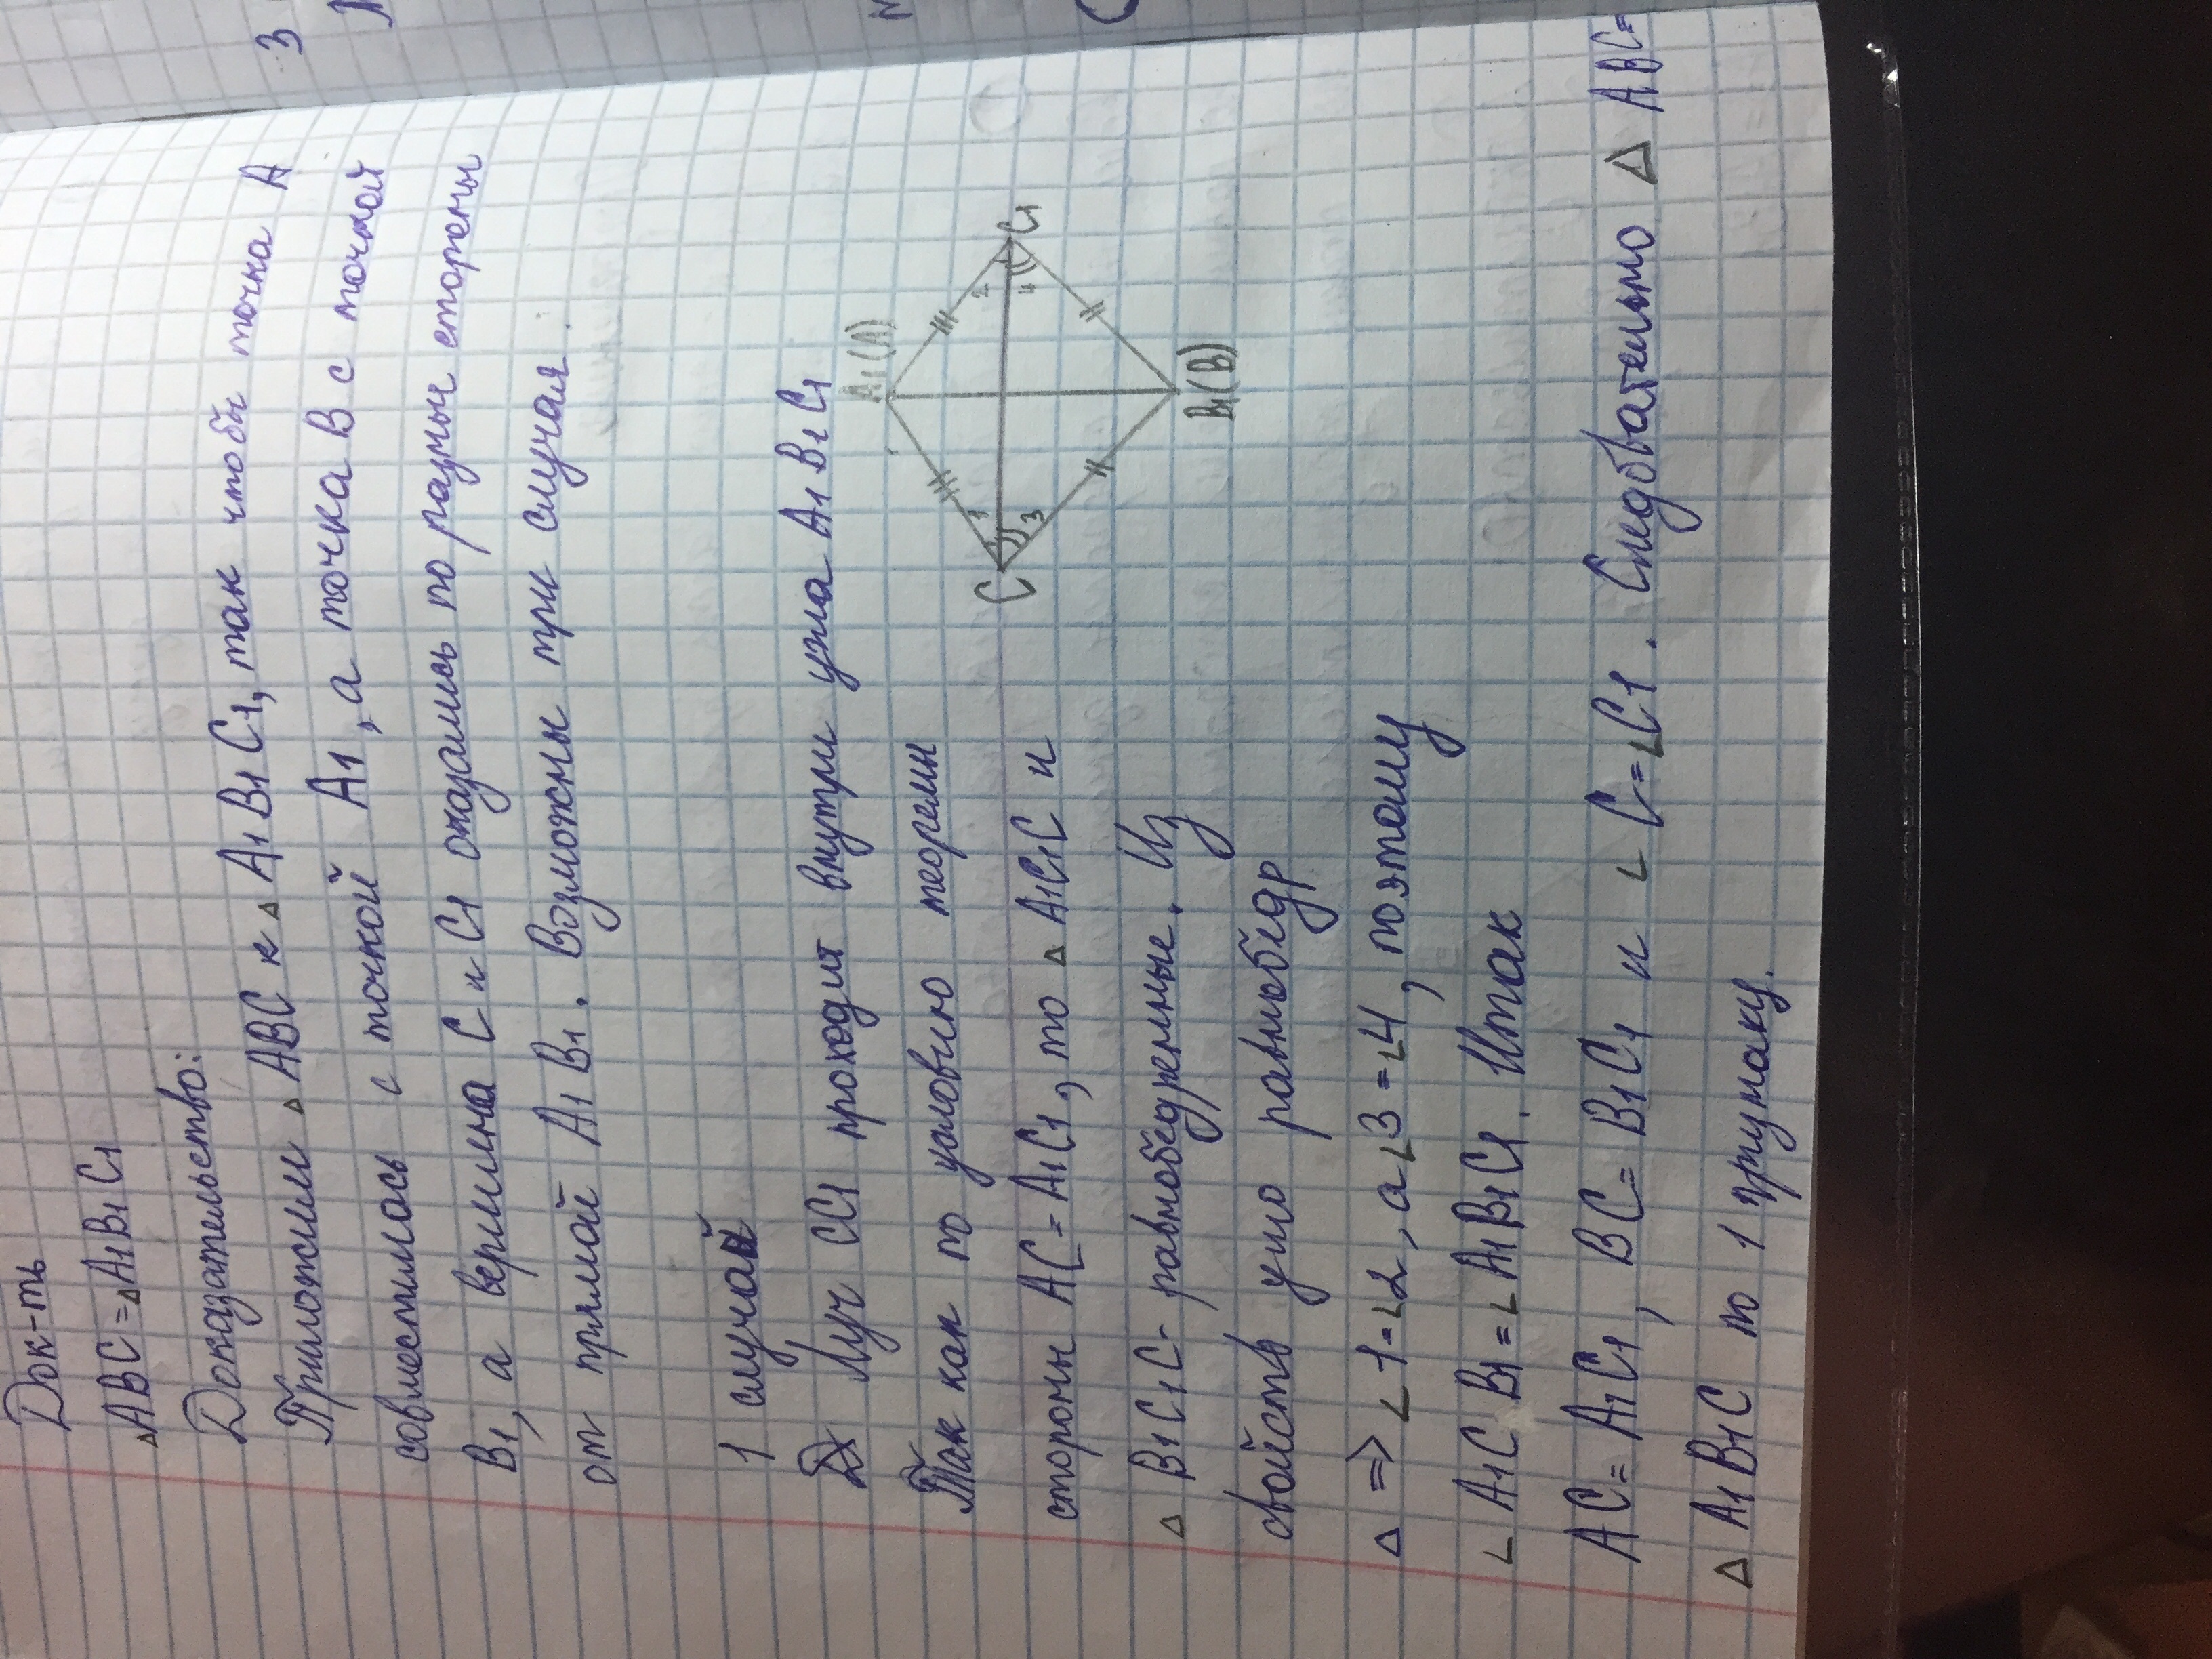 Док-ть
△ABC=△A1B1C1
Доказательство:
Приложим △ ABC к △ A1B1C1, так чтобы точка А
совместилась с точкой A1, а точка B с точкой
B1, а вершина C и C1 оказались по разные стороны
от прямой A1B1. Возможны три случая.
1 случай
Луч CC1 проходит внутри угла A1B1C1
Так как по условию теоремы
стороны AC=A1C1, то △ A1C1C и
△ B1C1C- равнобедренные. Из
свойств
равнобедр
△ => ∠1=∠2, а ∠3=∠4, поэтому
∠ A1CB1=∠ A1B1C1. Итак
AC=A1C1, BC=B1C1 и ∠ C=∠C1. Следовательно △ ABC=
△ A1B1C по 1 признаку.
A1(A)
2
C1
4
1
C
3
B1(B)
3